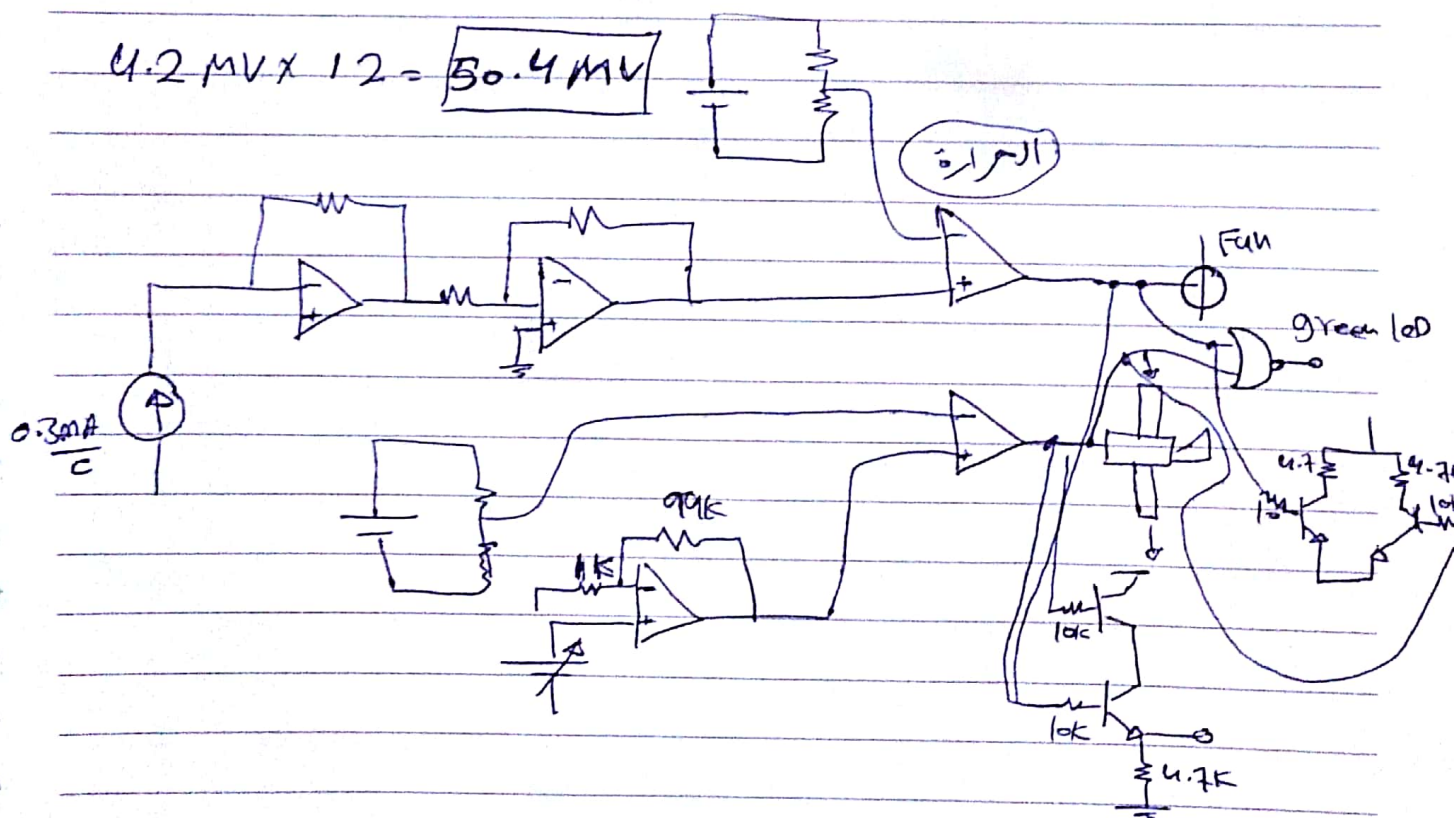 4.2 MV x 12 = 50.4 MV
الحرارة
Fan
green leD
0.3mA/C
- +
- +
- +
- +
- +
99K
1K
4.7
4.7K
10
10K
10K
10K
4.7K